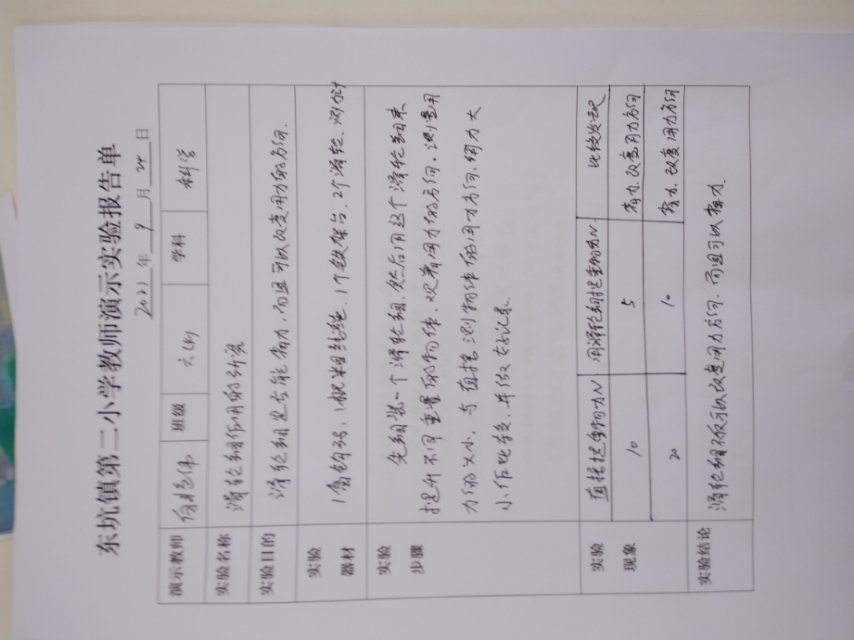 东坑镇第二小学教师演示实验报告单
2021 年 9 月 24 日
演示教师 班级 六(4) 学科 科学
实验名称 滑轮组作用的研究
实验目的 滑轮组是否能省力,而且可以改变用力的方向.
实验器材 1盒钩码、1根 1个铁架台、2个滑轮、测力计
实验步骤 先组装一个滑轮组,然后用这个滑轮组来
提升不同重量的物体,观看用力的方向,测量用
力的大小,与直接测物体的用力方向、用力大
小作比较,并做好记录.
实验现象 直接提重物力N 用滑轮组提重物力N 比较发现
10 5 省力、改变用力方向
20 10 省力、改变用力方向
实验结论 滑轮组不仅可以改变用力方向,而且可以省力.